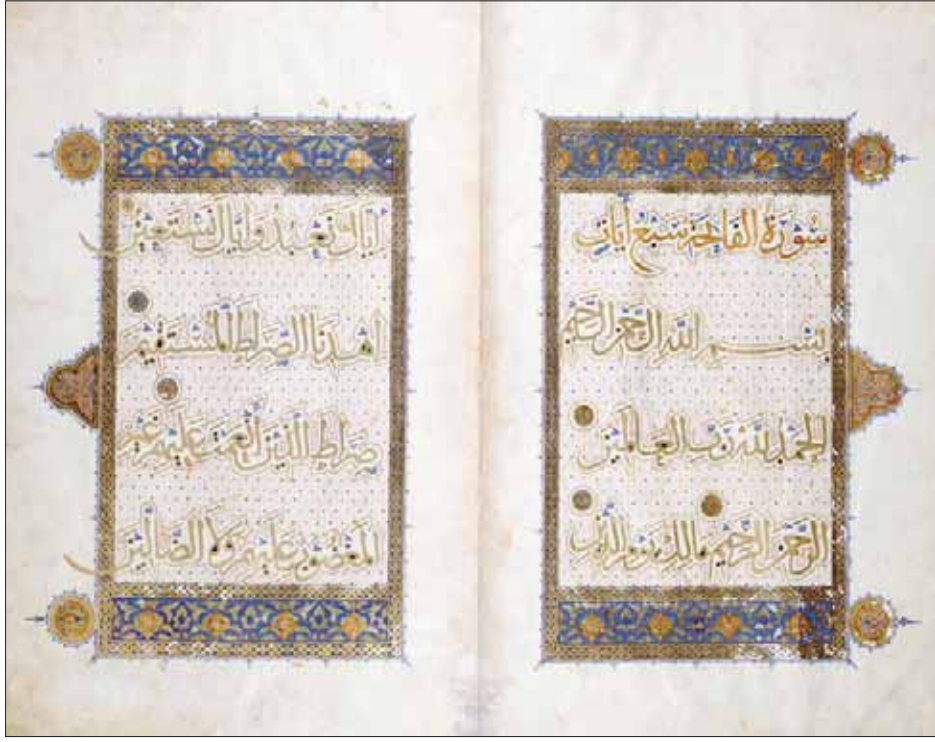 سورة الفاتحة سبع آيات
بسم الله الرحمن الرحيم
الحمد لله رب العالمين
الرحمن الرحيم مالك يوم الدين
اياك نعبد واياك نستعين
اهدنا الصراط المستقيم
صراط الذين انعمت عليهم غير
المغضوب عليهم ولا الضالين